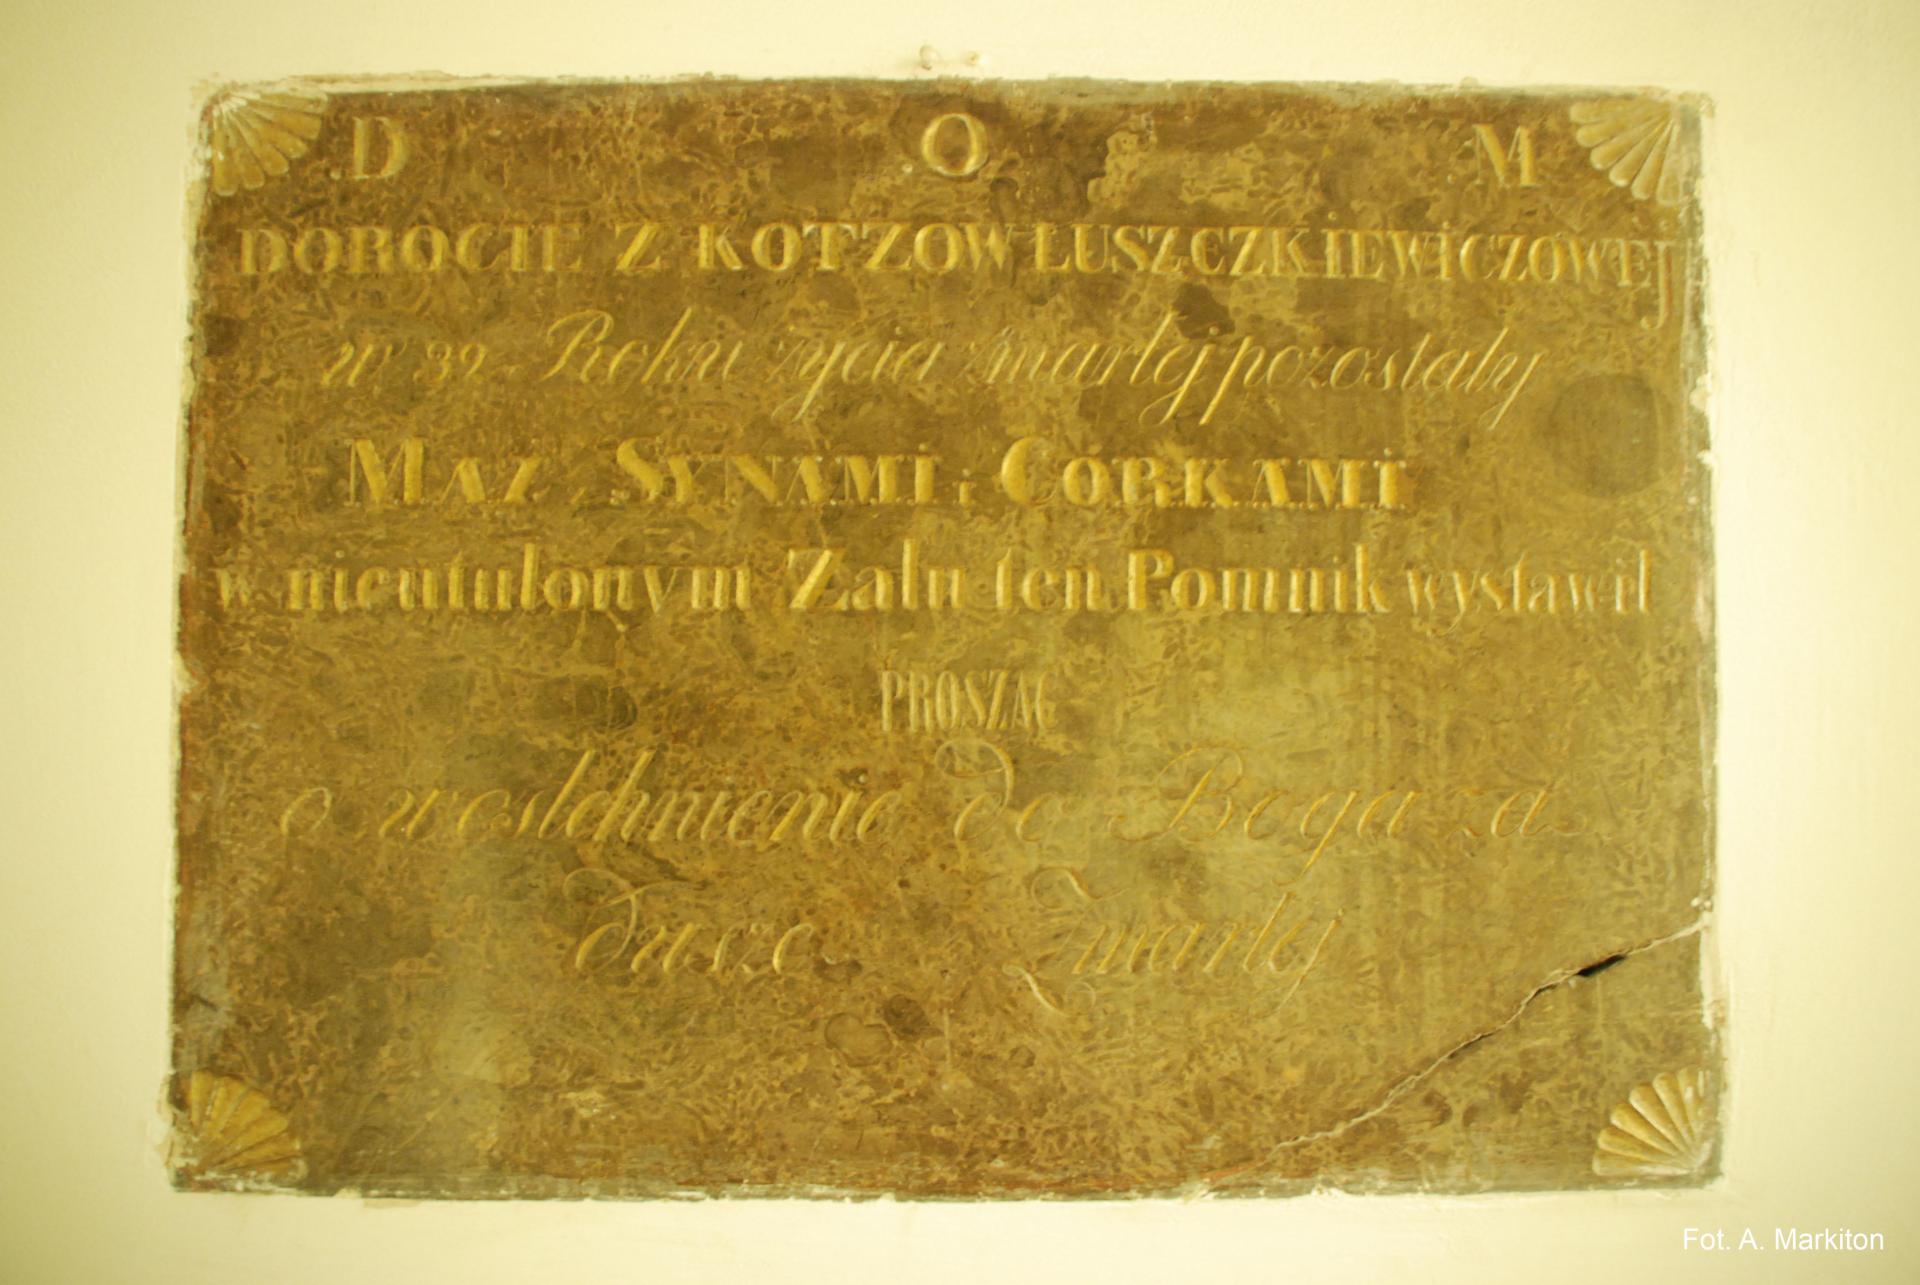 D O M
DOROCIE Z KOTZOW ŁUSZCZKIEWICZOWEJ
w 39 Roku życia zmarłej pozostały
MAZ z SYNAMI i CÓRKAMI
w nieutulonym Zalu ten Pomnik wystawił
PROSZĄC
o westchnienie do Boga za
dusze Zmarłej
Fot. A. Markiton